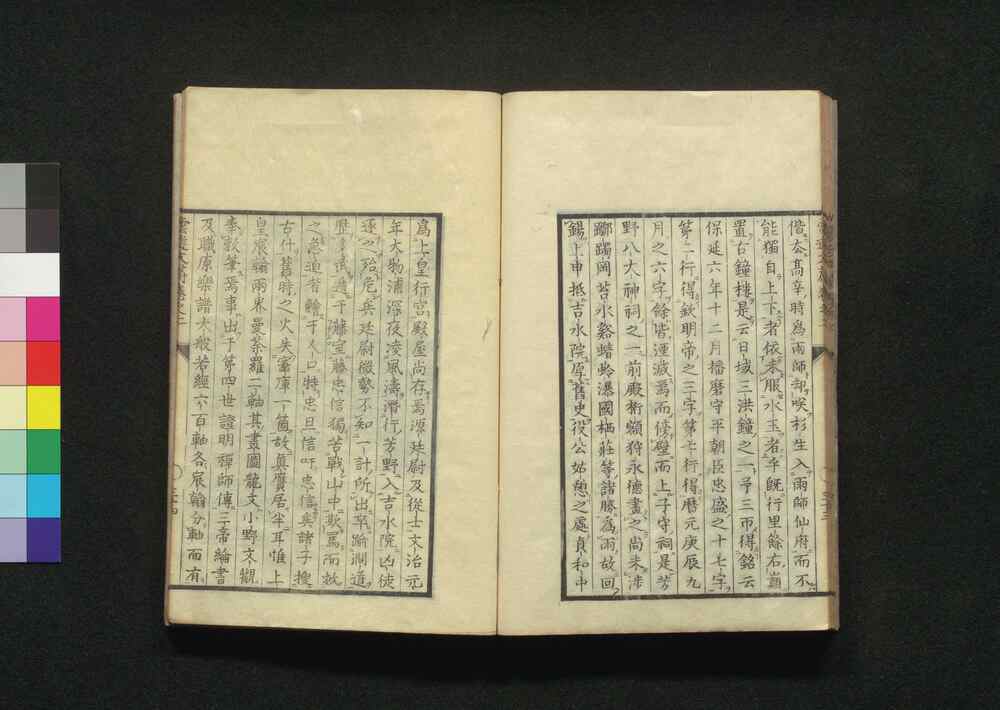 偕去高辛時爲雨師却咲杉生入雨師仙府而不
能獨自上下者依未服水玉者辛既行里餘右巓
置古鐘樓是云日域三洪鐘之一予三帀得銘云
保延六年十二月播磨守平朝臣忠盛之十七字
第二行得欽明帝之三字第七行得曆元庚辰九
月之六字餘皆湮滅焉而脩壁而上子守祠是芳
野八大神祠之一前殿術狩永德畫之尚未涉
躑躅岡苔水谿蜻蛉瀑國栖莊等諸勝爲雨故回
錫上申抵吉水院原舊史役公姑憩之處貞和中
爲上皇行宮殿屋尚存焉源廷尉及從士文治元
年大物浦深夜凌風濤潛行芳野入吉水院凶徒
逐之殆危矣廷尉微勢不知一計所出卒踰澗道
歷試遁于藤室藤忠信獨苦戰山中欺焉而救
之急逭者輪于人口特忠旦信吁忠信矣諸子搜
古什舊時之火失富庫一箇故眞贋居半耳惟上
皇宸翰兩界曼荼羅二軸其畫圖龍文小野文觀
奉敕筆焉事出于第四世證明禪師傳三帝綸書
及職原樂譜大般若經六百軸各宸翰分軸而有